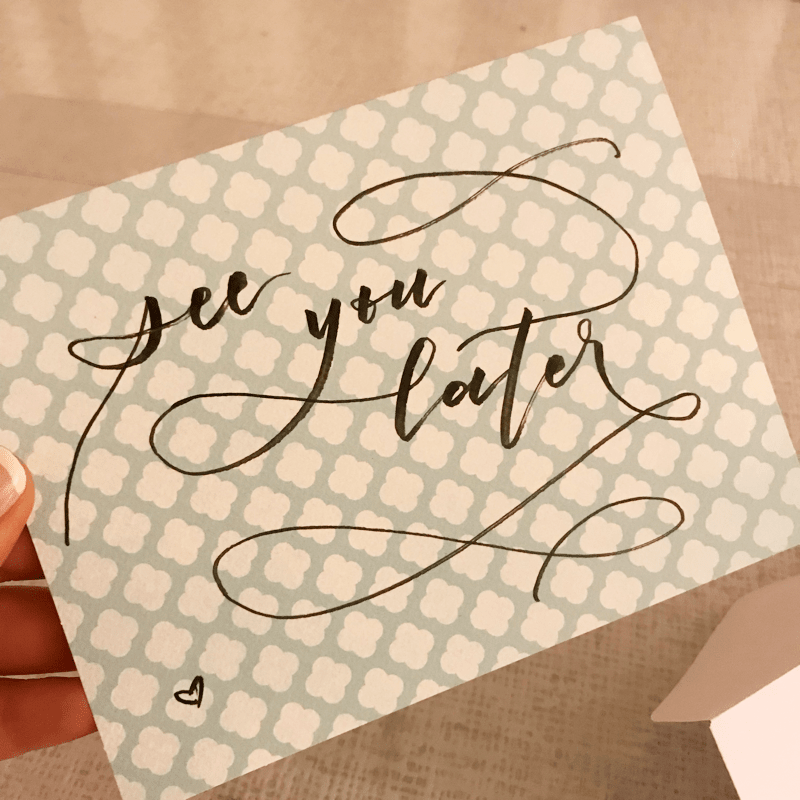 see you
later